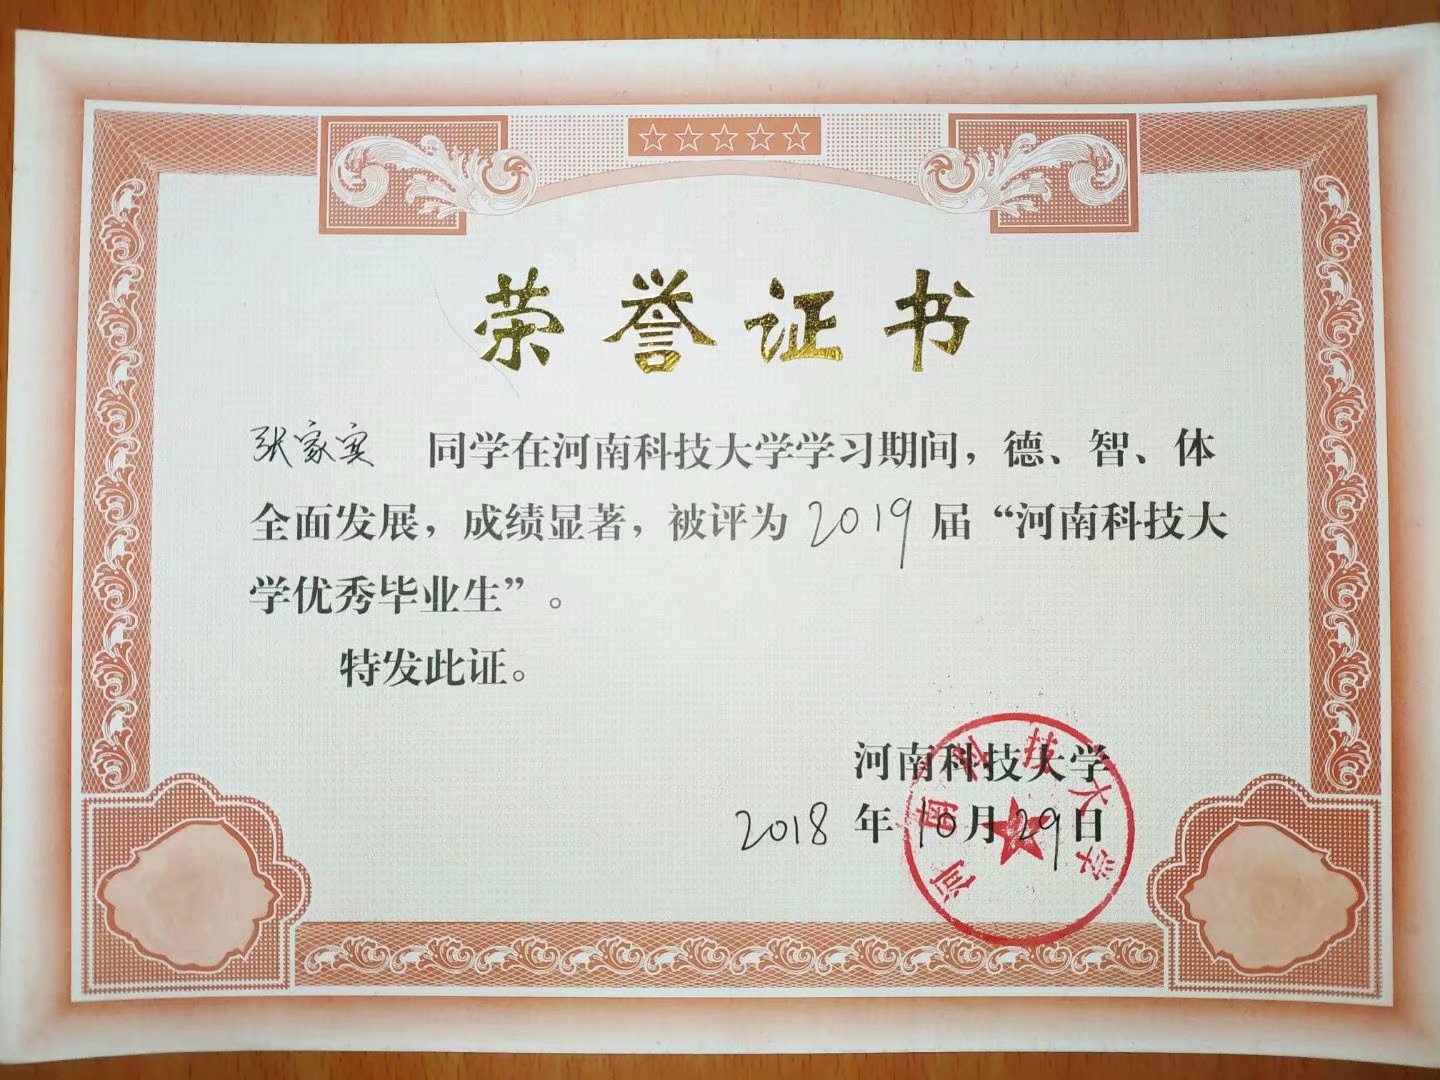 荣誉证书
张家实 同学在河南科技大学学习期间，德、智、体
全面发展，成绩显著，被评为 2019 届“河南科技大
学优秀毕业生”。
特发此证。
河南科技大学
2018 年 10 月 29 日
河南科技大学